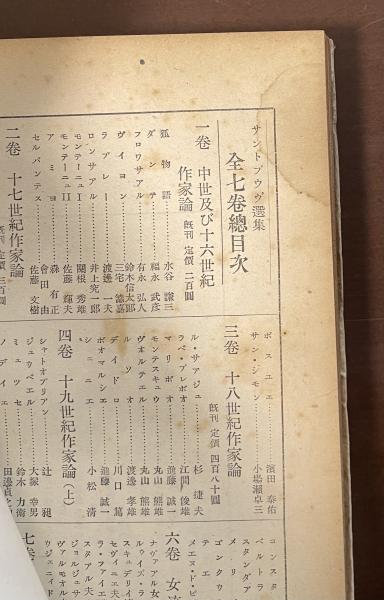 サントブウヴ選集
全七卷總目次
一卷 中世及び十六世紀作家論 既刊 定價 二百圓
狐物語 水谷 謙三
ダンテ 福永 武彦
フロワサアル 有永 弘人
ヴィヨン 鈴木信太郎
ラブレー 三宅 德嘉
ロンサアル 渡邊 一夫
モンテーニュI 井上究一郎
モンテーニュII 關根 秀雄
アミヨ 佐藤 輝夫
セルバンテス 森 有正
會田 由
佐藤 文樹
二卷 十七世紀作家論
既刊 定價
三卷 十八世紀作家論
既刊 定價 四百八十圓
ボスユエ 濱田 泰佑
サン・シモン 小場瀬卓三
ル・サアジュ 杉 捷夫
ラベ・プレボオ 江間 俊雄
マリボオ 進藤 誠一
モンテスキュウ 丸山 熊雄
ヴォルテエル 丸山 熊雄
ルソオ 渡邊 孝雄
ディドロ 川口 篤
ボオマルシエ 進藤 誠一
シェニエ 小松 清
四卷 十九世紀作家論(上)
シャトオブリアン 辻 昶
ジュウベエル 大塚 幸男
ミュッセ 鈴木 力衛
ノディエ
コンスタ
ベルトラ
スタンダア
メリ
ゴンクウ
テエ
メエヌ・ド・ビ
六卷 女流
ナヴァアル女
ルウイズ・ラ
スキュデリイ
セヴィニエ夫
ラ・ファイエ
スタアル夫
ジョルジュサ
ヴァルモオル
ウジェニイド
七卷